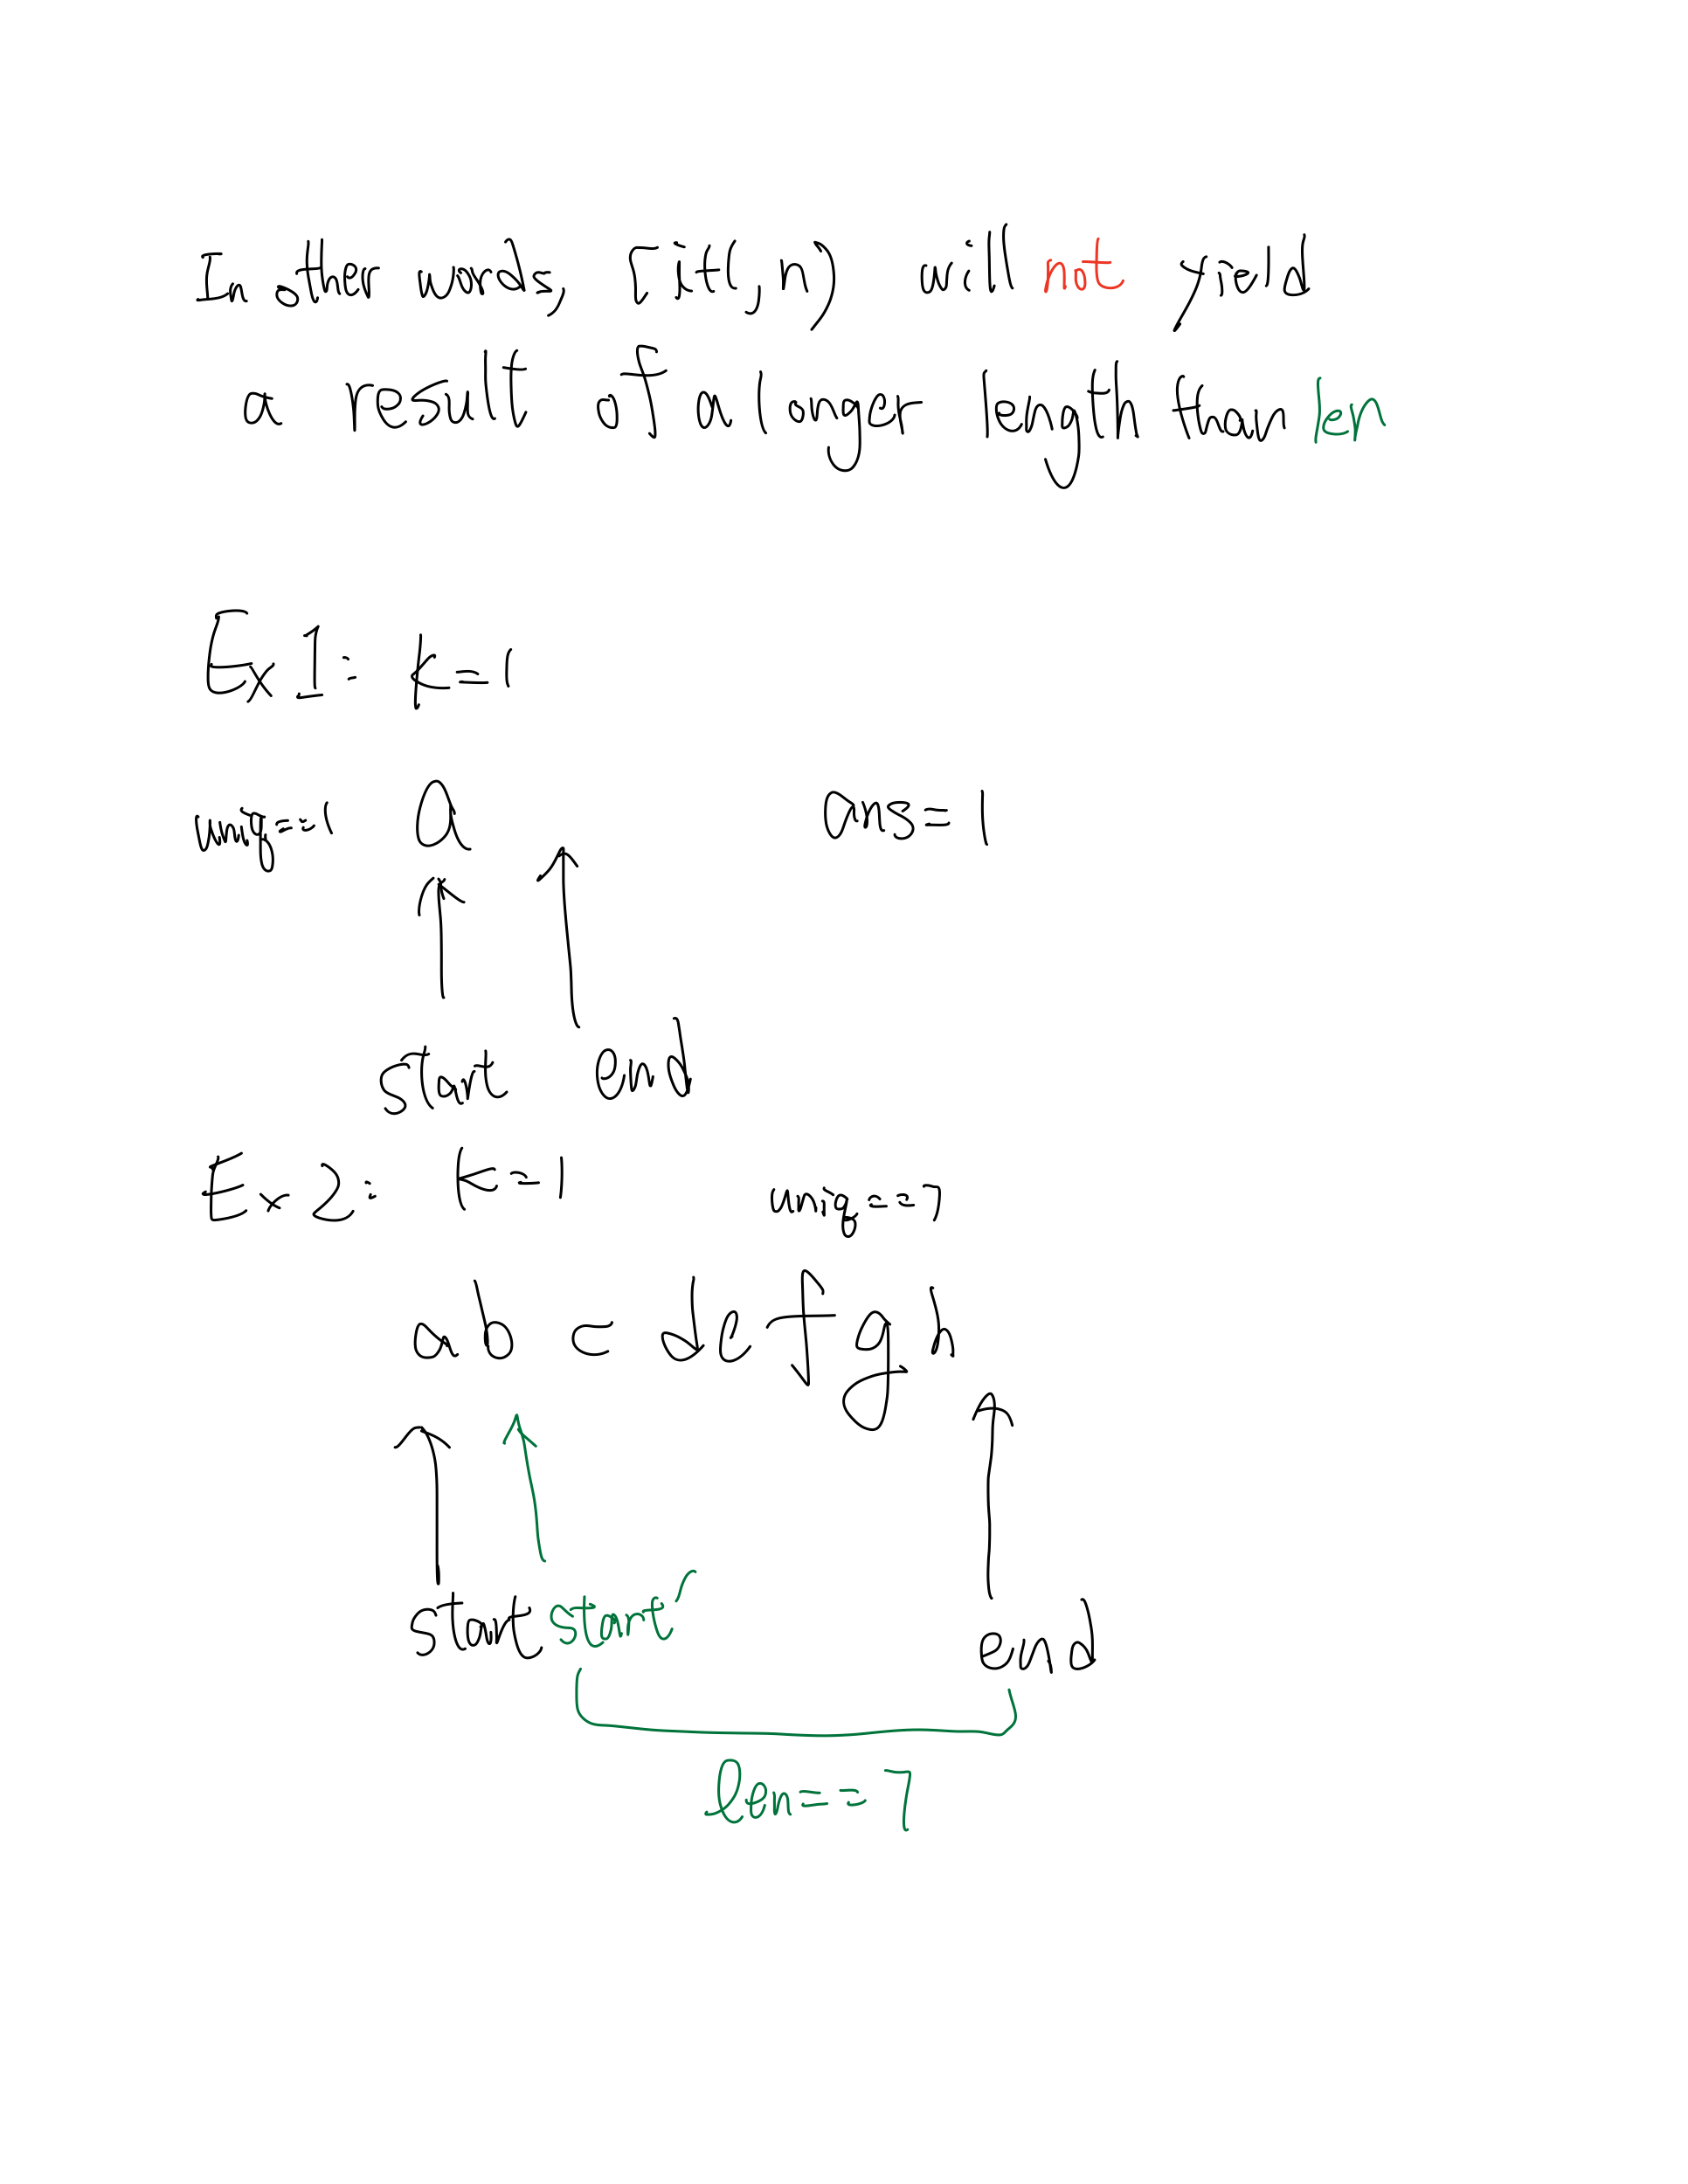 In other words, [i+1, n) will not yield
a result of a longer length than len
Ex1: k=1
uniq==1 a ans=1
start end
Ex2: k=1 uniq==7
ab c de f g h
start start' end
len==7